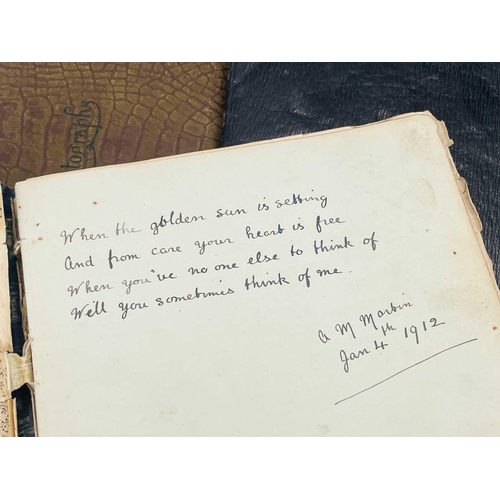 tography
When the golden sun is setting
And from care your heart is free
When you've no one else to think of
Well you sometimis think of me.
A M Martin
Jan 4th 1912